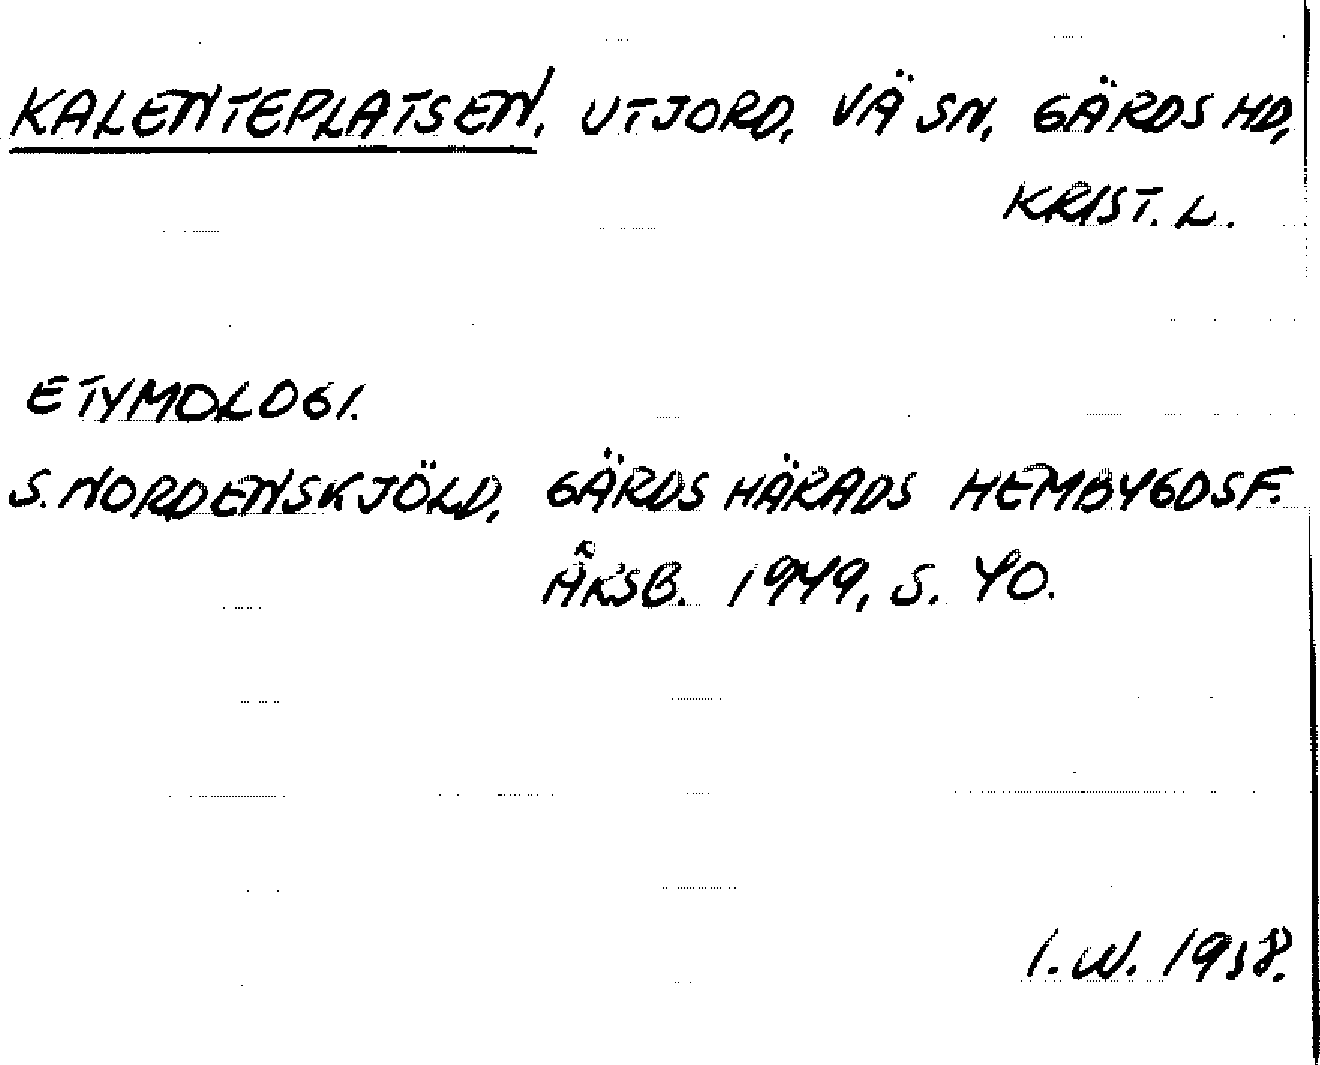 KALENTEPLATSEN, UTJORD, VÄ SN, GÄRDS HD,
KRIST. L.
ETYMOLOGI.
S. NORDENSKJÖLD, GÄRDS HÄRADS HEMBYGDSF.
ÅRSB. 1949, S. 40.
I. W. 1958.